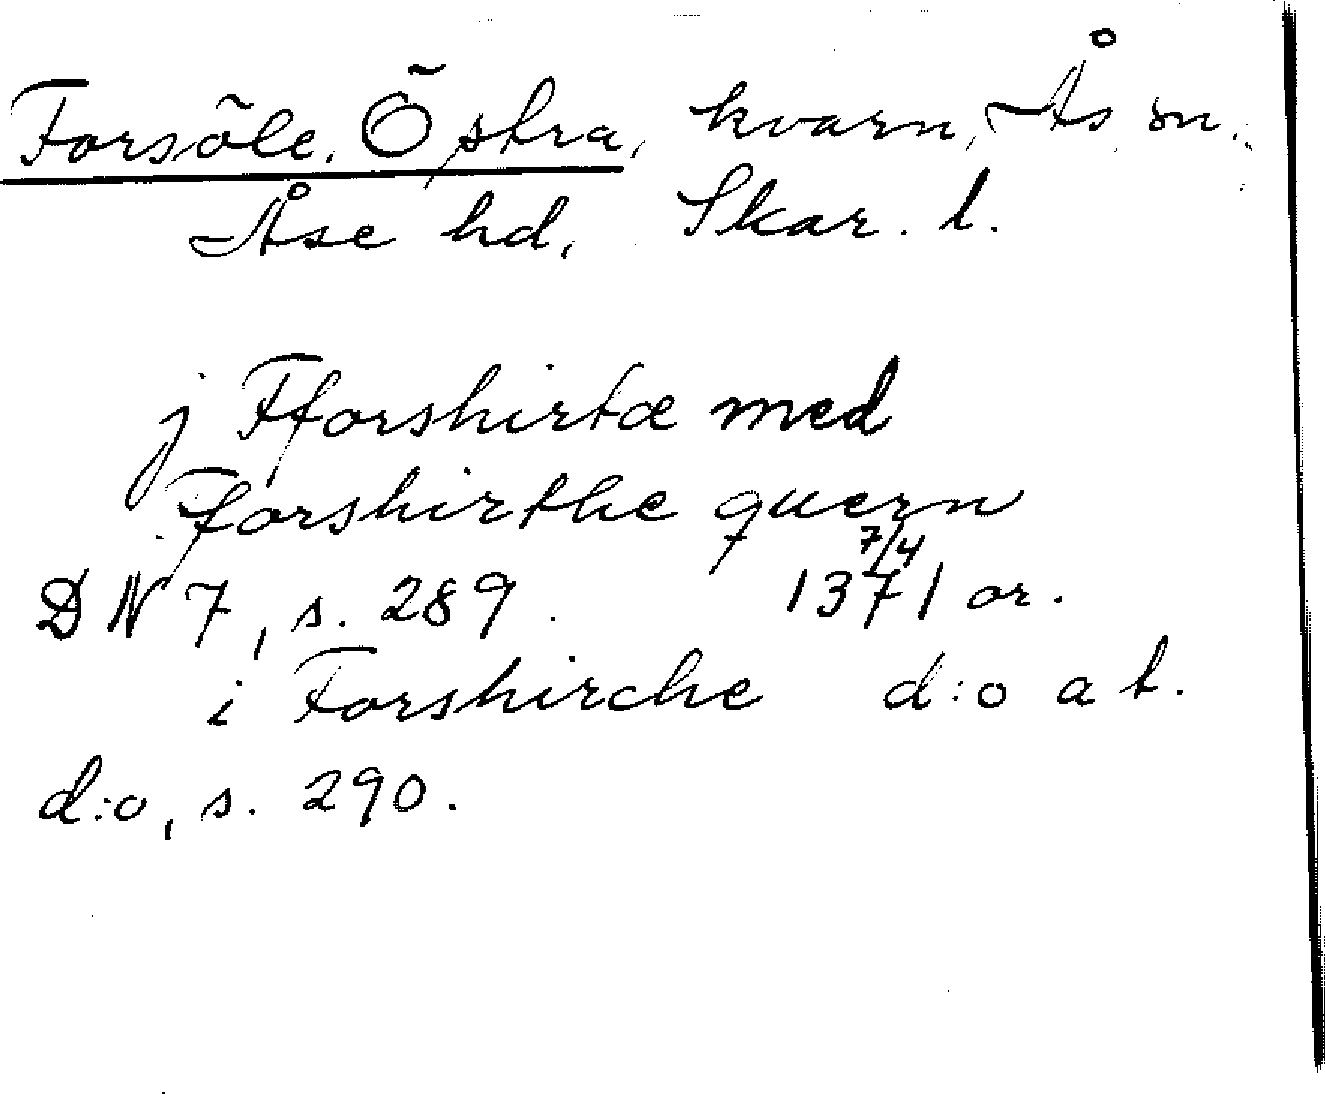 Forsöle, Östra, kvarn, Ås sn,
Åse hd, Skar. l.
j Fforshirtæ med
Forshirthe quern
DN 7, s. 289. 1371 7/4 or.
i Forshirche d:o at.
d:o, s. 290.